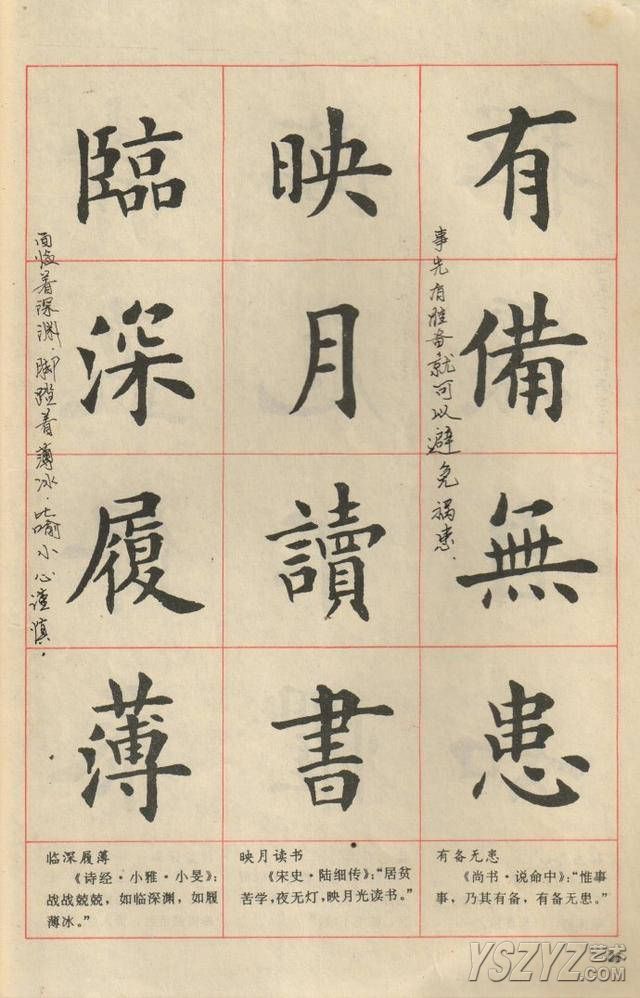 有備無患
事先有准备就可以避免祸患.
映月讀書
臨深履薄
面临着深渊.脚蹬着薄冰.比喻小心谨慎.
有备无患
《尚书·说命中》:“惟事
事,乃其有备,有备无患。”
映月读书
《宋史·陆细传》:“居贫
苦学,夜无灯,映月光读书。”
临深履薄
《诗经·小雅·小旻》:
战战兢兢,如临深渊,如履
薄冰。”
YSZYZ艺术
.com